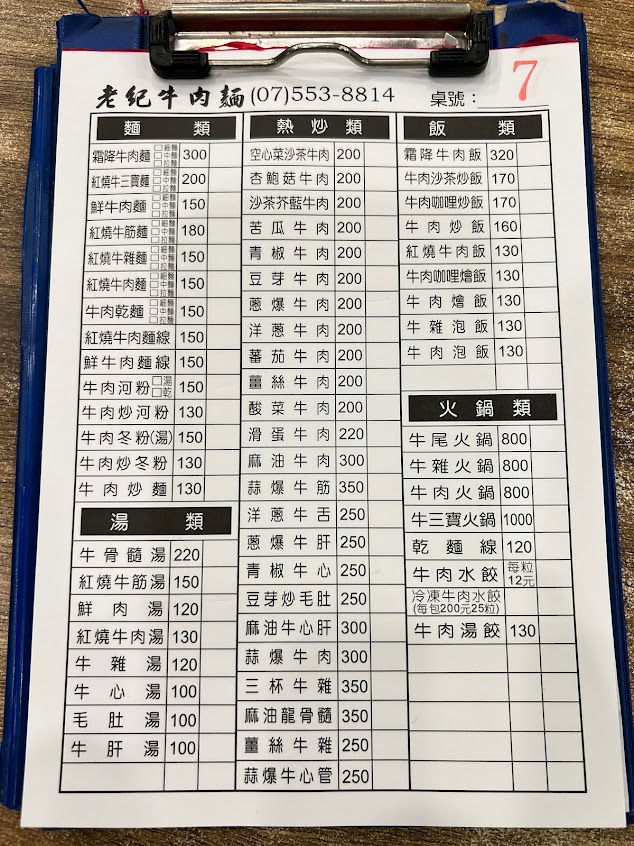 老紀牛肉麵 (07)553-8814 桌號：7
麵類
霜降牛肉麵 □細麵 □中麵 □拉麵 300
紅燒牛三寶麵 □細麵 □中麵 □拉麵 200
鮮牛肉麵 □細麵 □中麵 □拉麵 150
紅燒牛筋麵 □細麵 □中麵 □拉麵 180
紅燒牛雜麵 □細麵 □中麵 □拉麵 150
紅燒牛肉麵 □細麵 □中麵 □拉麵 150
牛肉乾麵 □細麵 □中麵 □拉麵 150
紅燒牛肉麵線 150
鮮牛肉麵線 150
牛肉河粉 □湯 □乾 150
牛肉炒河粉 130
牛肉冬粉(湯) 150
牛肉炒冬粉 130
牛肉炒麵 130
湯類
牛骨髓湯 220
紅燒牛筋湯 150
鮮肉湯 120
紅燒牛肉湯 130
牛雜湯 120
牛心湯 100
毛肚湯 100
牛肝湯 100
熱炒類
空心菜沙茶牛肉 200
杏鮑菇牛肉 200
沙茶芥藍牛肉 200
苦瓜牛肉 200
青椒牛肉 200
豆芽牛肉 200
蔥爆牛肉 200
洋蔥牛肉 200
蕃茄牛肉 200
薑絲牛肉 200
酸菜牛肉 200
滑蛋牛肉 220
麻油牛肉 300
蒜爆牛筋 350
洋蔥牛舌 250
蔥爆牛肝 250
青椒牛心 250
豆芽炒毛肚 250
麻油牛心肝 300
蒜爆牛肉 300
三杯牛雜 350
麻油龍骨髓 350
薑絲牛雜 250
蒜爆牛心管 250
飯類
霜降牛肉飯 320
牛肉沙茶炒飯 170
牛肉咖哩炒飯 170
牛肉炒飯 160
紅燒牛肉飯 130
牛肉咖哩燴飯 130
牛肉燴飯 130
牛雜泡飯 130
牛肉泡飯 130
火鍋類
牛尾火鍋 800
牛雜火鍋 800
牛肉火鍋 800
牛三寶火鍋 1000
乾麵線 120
牛肉水餃 每粒12元
冷凍牛肉水餃
(每包200元25粒)
牛肉湯餃 130